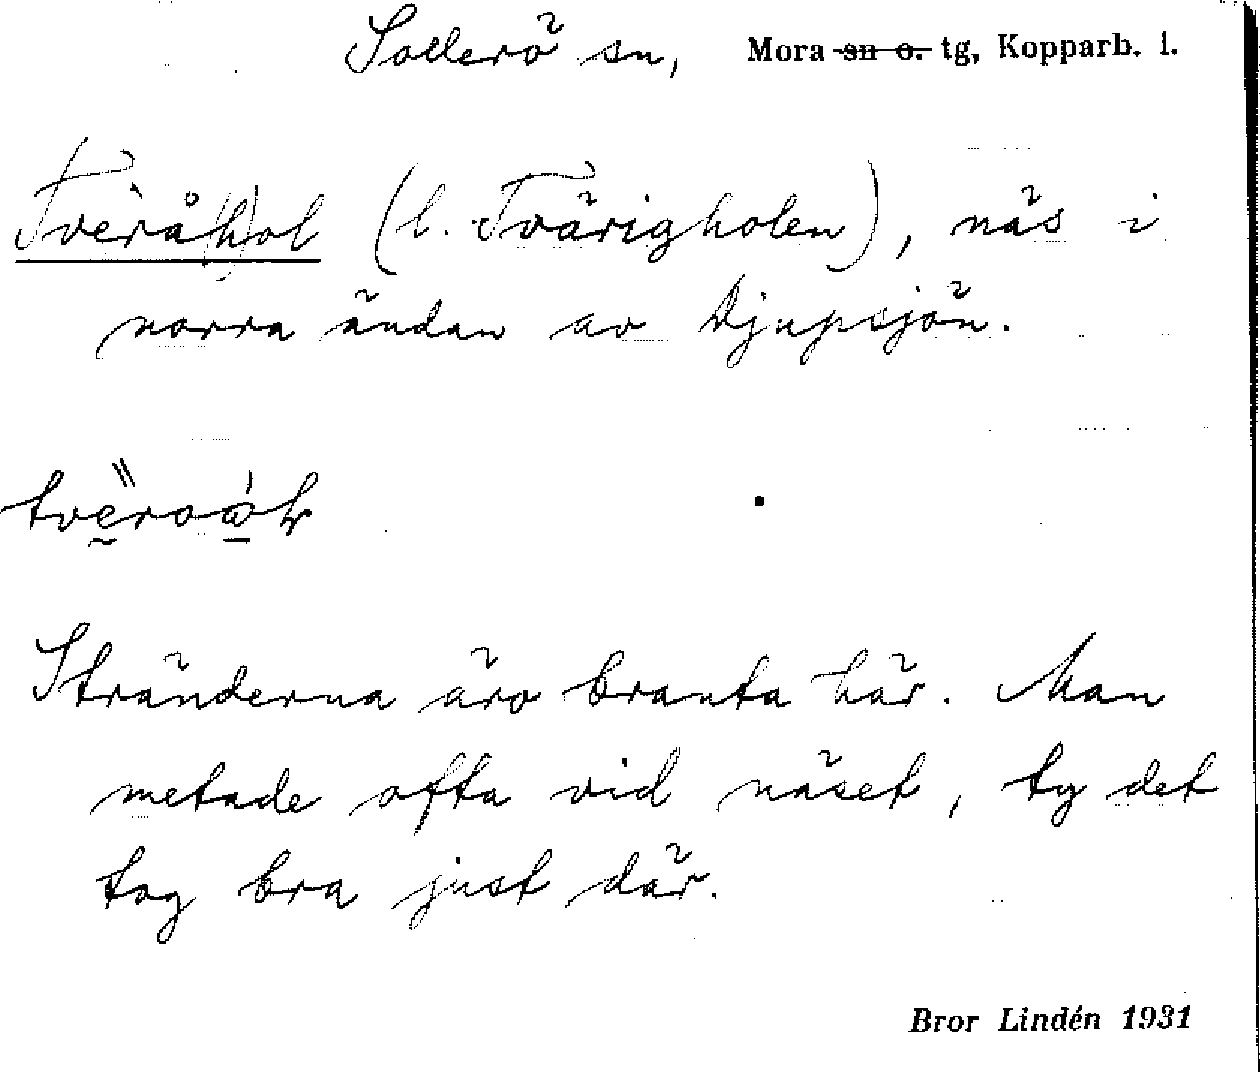 Sollerö sn, Mora sn o. tg, Kopparb. l.
Tvèrå(h)ol (l. Tvärigholen), näs i
norra ändan av Djupsjön.
Stränderna äro branta här. Man
metade ofta vid näset, ty det
tog bra just där.
Bror Lindén 1931